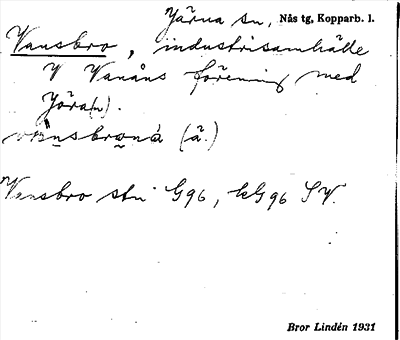 Järna sn, Nås tg, Kopparb. l.
Vansbro, industrisamhälle
V Vanåns förening med
Jöra(n).
vånsbroná (ä.)
Vansbro stn G96, kG96 SV.
Bror Lindén 1931